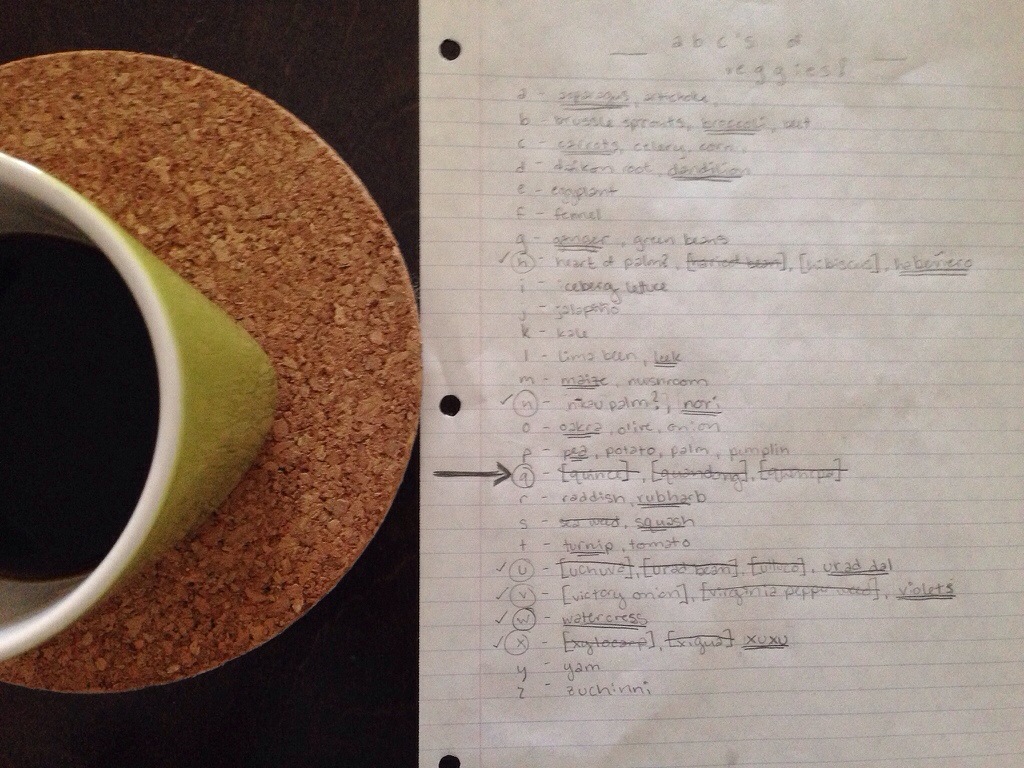 abc's of
veggies!
a - asparagus, artichoke
b - brussle sprouts, broccoli, beet
c - carrots, celery, corn,
d - daikon root, dandilion
e - eggplant
f - fennel
g - ganger, green beans
✓ h - heart of palm?, [haricot bean], [hibiscus], habenero
i - iceberg lettuce
j - jalapeño
k - kale
l - lima been, leek
m - maize, mushroom
✓ n - nikau palm?, nori
o - oakra, olive, onion
p - pea, potato, palm, pumplin
→ q - [quince], [quandong], [quenepa]
r - raddish, rubharb
s - sea weed, squash
t - turnip, tomato
✓ u - [uchuva], [urad bean], [ulluco], urad dal
✓ v - [victory onion], [virginia pepper weed], violets
✓ w - watercress
✓ x - [xylocarp], [xigua] xuxu
y - yam
z - zuchinni